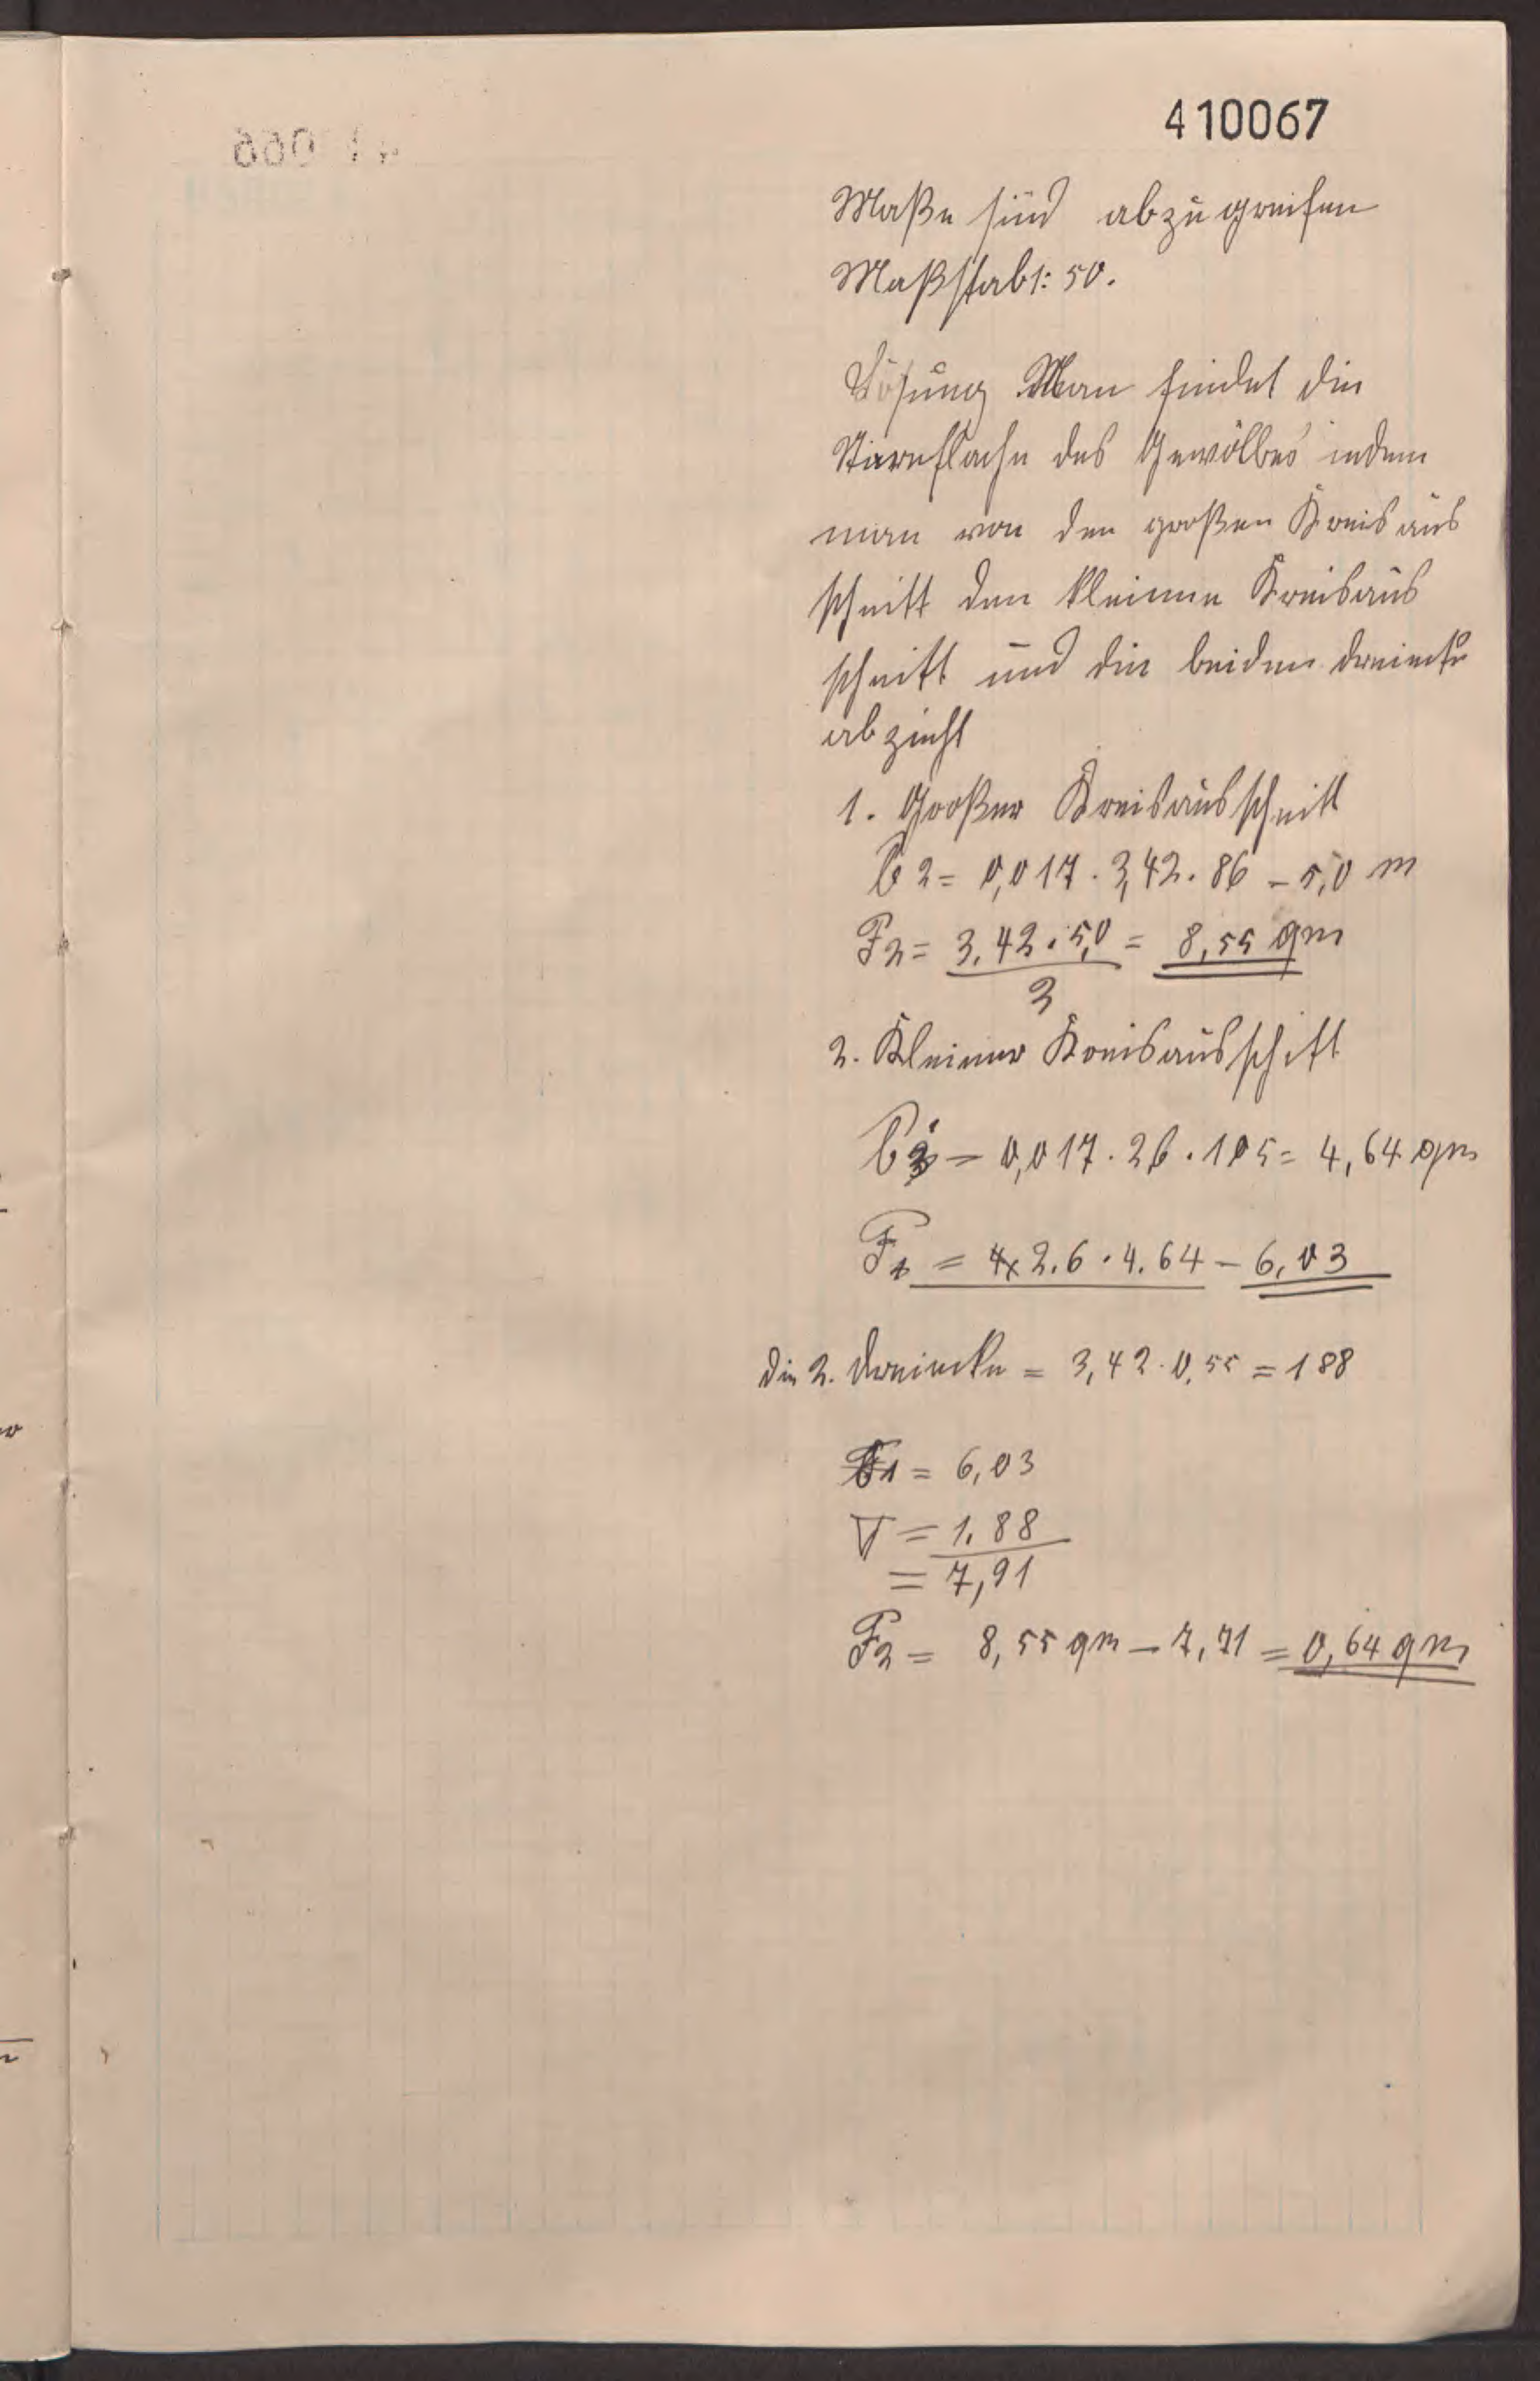 410067
Maße sind abzugreifen
Maßstab 1:50.
Lösung Man findet die
Stirnfläche des Gewölbes indem
man von den großen Kreisaus
schnitt den kleinen Kreisaus
schnitt und die beiden dreiecke
abzieht
1. Großer Kreisausschnitt
b2 = 0,017 . 3,42 . 86 – 5,0 m
F2 = 3,42 . 5,0 = 8,55 qm
2
2. Kleiner Kreisausschitt
b = 0,017 . 26 . 105 = 4,64 qm
F1 = 2.6 . 4.64 – 6,03
die 2. dreiecke = 3,42 . 0,55 = 188
F1 = 6,03
∇ = 1.88
= 7,91
F2 = 8,55 qm – 7,91 = 0,64 qm